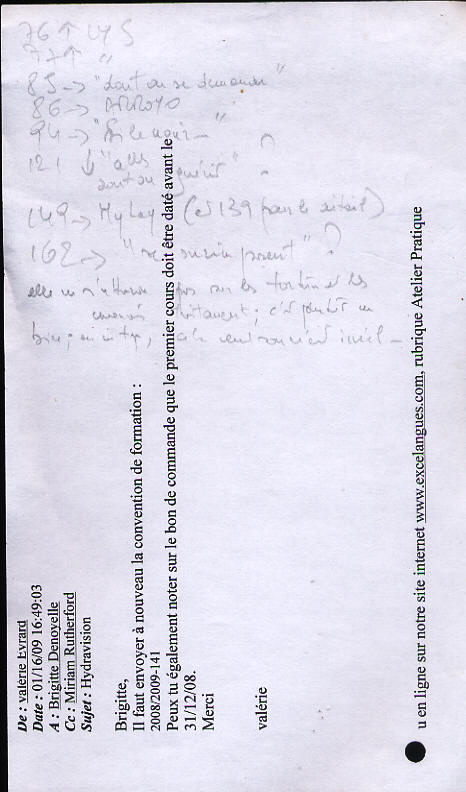 76 ↑ LYS
77 ↑ "
85 → "dont on se demande"
86 → ARROYO
94 → "
121 ↓ "
dont on guérit" ?
149 → My Lay (cf 139 pour le détail)
162 → " ?
elle ne pas sur les tortures et les
c'est un
De : valérie Evrard
Date : 01/16/09 16:49:03
A : Brigitte Denoyelle
Cc : Miriam Rutherford
Sujet : Hydravision
Brigitte,
Il faut envoyer à nouveau la convention de formation :
2008/2009-141
Peux tu également noter sur le bon de commande que le premier cours doit être daté avant le
31/12/08.
Merci
valérie
u en ligne sur notre site internet www.excelangues.com, rubrique Atelier Pratique